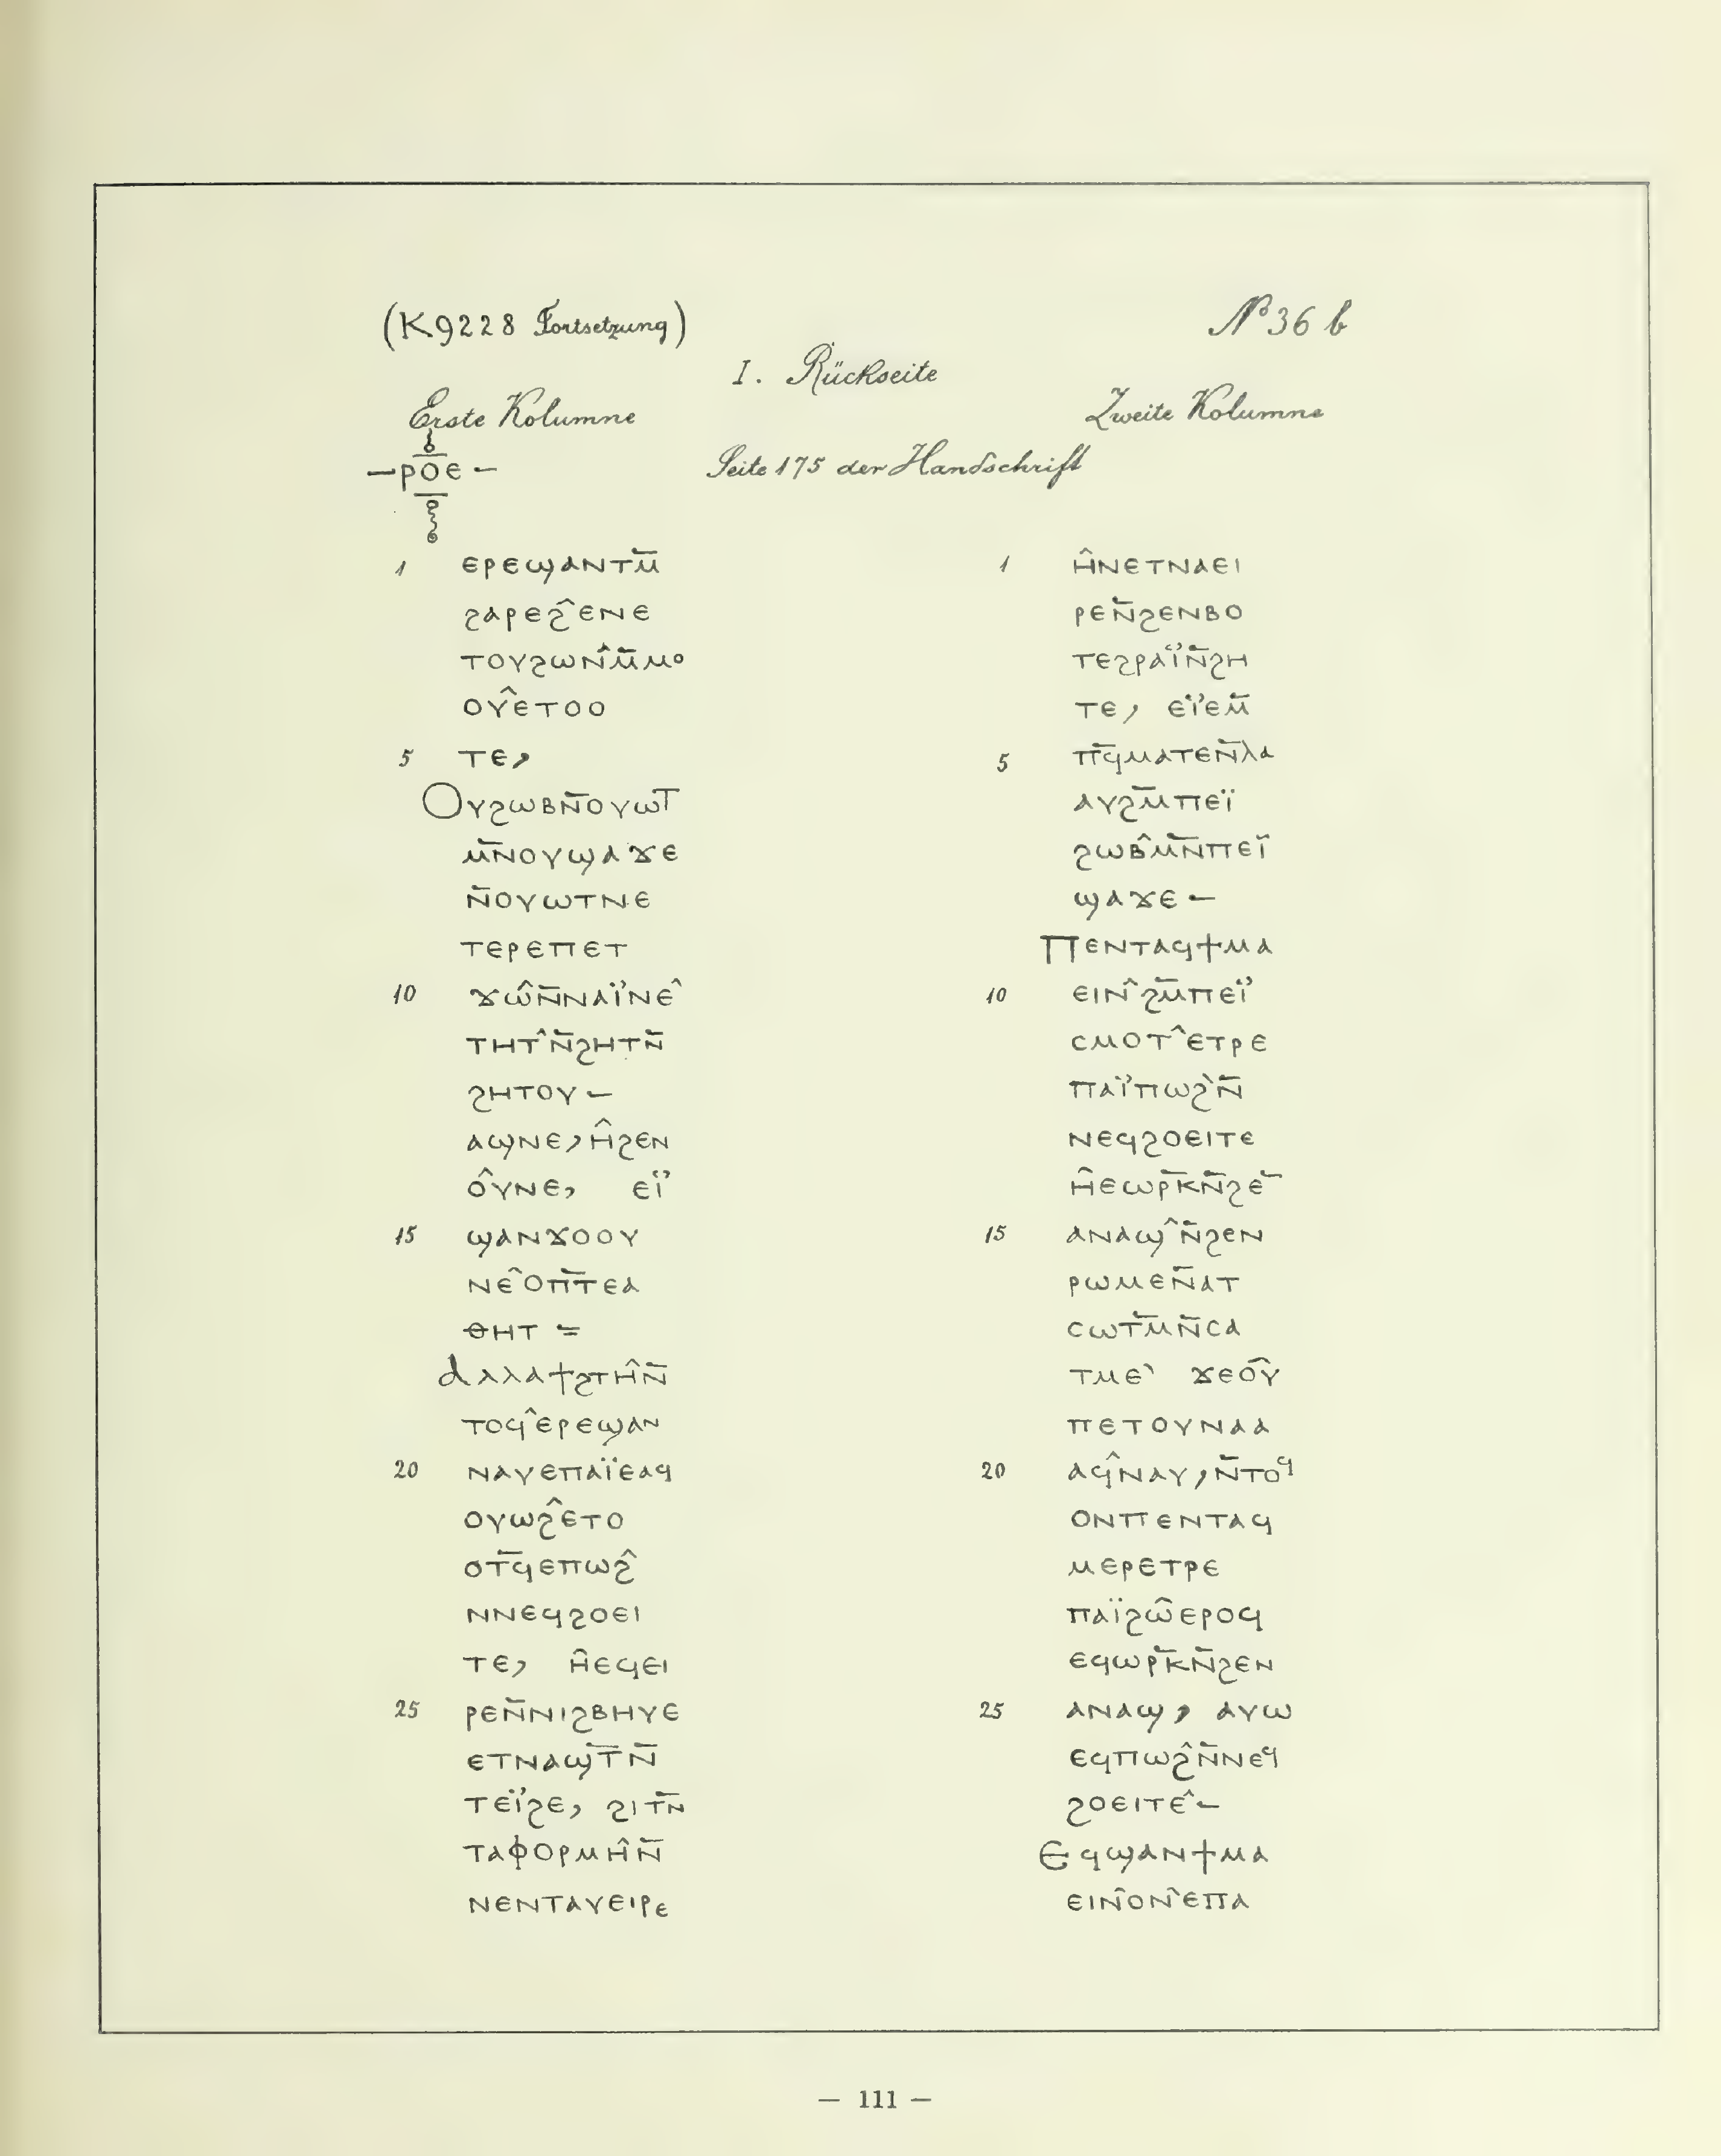 (K9228 Fortsetzung)
№ 36 b
I. Rückseite
Erste Kolumne
Zweite Kolumne
—ⲣⲟⲉ—
Seite 175 der Handschrift
1 ⲉⲣⲉϣⲁⲛⲧⲙ̄
ϩⲁⲣⲉϩ̂ⲉⲛⲉ
ⲧⲟⲩϩⲱⲛ̂ⲙ̄ⲙⲟ
ⲟⲩ̂ⲉⲧⲟⲟ
5 ⲧⲉ,
Ⲟⲩϩⲱⲃⲛ̄ⲟⲩⲱⲧ
ⲙ̄ⲛⲟⲩϣⲁϫⲉ
ⲛ̄ⲟⲩⲱⲧⲛⲉ
ⲧⲉⲣⲉⲡⲉⲧ
10 ϫⲱ̂ⲛ̄ⲛⲁⲓ̈ⲛⲉ̂
ⲧⲏⲧ̂ⲛ̄ϩⲏⲧⲛ̄
ϩⲏⲧⲟⲩ —
ⲁϣⲛⲉ, ⲏ̂ϩⲉⲛ
ⲟ̂ⲩⲛⲉ, ⲉⲓ̈
15 ϣⲁⲛϫⲟⲟⲩ
ⲛⲉ̂ⲟⲡ̄ⲧ̄ⲉⲁ
ⲑⲏⲧ =
ⲁⲗⲗⲁϯϩⲧⲏ̂ⲛ̄
ⲧⲟϥ̂ⲉⲣⲉϣⲁⲛ
20 ⲛⲁⲩⲉⲡⲁⲓ̈ⲉⲁϥ
ⲟⲩⲱϩ̂ⲉⲧⲟ
ⲟⲧ̄ϥ̄ⲉⲡⲱϩ̂
ⲛⲛⲉϥϩⲟⲉⲓ
ⲧⲉ, ⲏ̂ⲉϥⲉⲓ
25 ⲣⲉⲛ̄ⲛⲓϩⲃⲏⲩⲉ
ⲉⲧⲛⲁϣ̄ⲧ̄ⲛ̄
ⲧⲉⲓ̈ϩⲉ, ϩⲓⲧⲛ̄
ⲧⲁⲫⲟⲣⲙⲏ̂ⲛ̄
ⲛⲉⲛⲧⲁⲩⲉⲓⲣⲉ
1 ⲏ̂ⲛⲉⲧⲛⲁⲉⲓ
ⲣⲉⲛ̄ϩⲉⲛⲃⲟ
ⲧⲉϩⲣⲁⲓ̈ⲛ̄ϩⲏ
ⲧⲉ, ⲉⲓ̈ⲉⲙ̄
5 ⲡ̄ϥ̄ⲙⲁⲧⲉⲛ̄ⲗⲁ
ⲁⲩϩⲙ̄ⲡⲉⲓ̈
ϩⲱⲃ̂ⲙ̄ⲛ̄ⲡⲉⲓ̈
ϣⲁϫⲉ —
Ⲡⲉⲛⲧⲁϥϯⲙⲁ
10 ⲉⲓⲛ̂ϩⲙ̄ⲡⲉⲓ̈
ⲥⲙⲟⲧ̂ⲉⲧⲣⲉ
ⲡⲁⲓ̈ⲡⲱϩ̀ⲛ̄
ⲛⲉϥϩⲟⲉⲓⲧⲉ
ⲏ̂ⲉⲱⲣ̄ⲕ̄ⲛ̄ϩⲉ̄
15 ⲁⲛⲁϣ̂ⲛ̄ϩⲉⲛ
ⲣⲱⲙⲉⲛ̄ⲁⲧ
ⲥⲱⲧ̄ⲙ̄ⲛ̄ⲥⲁ
ⲧⲙⲉ̀ ϫⲉⲟⲩ̂
ⲡⲉⲧⲟⲩⲛⲁⲁ
20 ⲁϥ̂ⲛⲁⲩ, ⲛ̄ⲧⲟϥ
ⲟⲛⲡⲉⲛⲧⲁϥ
ⲙⲉⲣⲉⲧⲣⲉ
ⲡⲁⲓ̈ϩⲱ̂ⲉⲣⲟϥ
ⲉϥⲱⲣ̄ⲕ̄ⲛ̄ϩⲉⲛ
25 ⲁⲛⲁϣ, ⲁⲩⲱ
ⲉϥⲡⲱϩ̂ⲛ̄ⲛⲉϥ
ϩⲟⲉⲓⲧⲉ̂ —
Ⲉϥϣⲁⲛϯⲙⲁ
ⲉⲓⲛ̂ⲟⲛ̂ⲉⲡⲁ
— 111 —